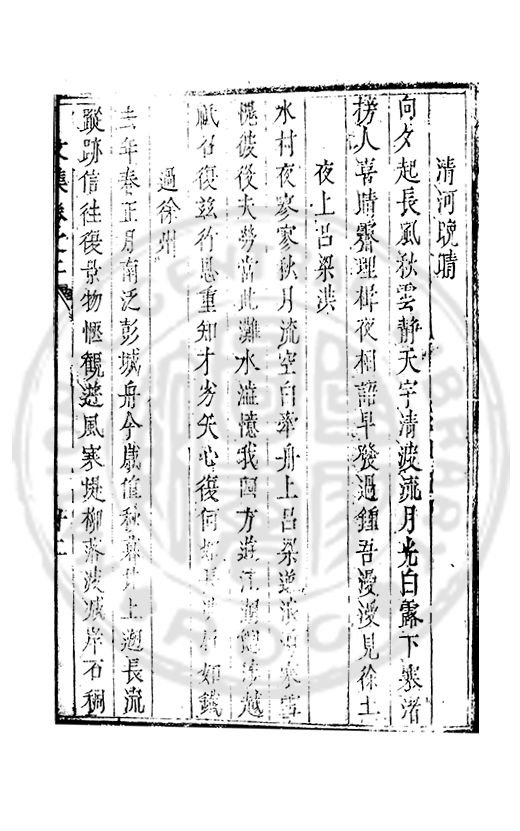 清河晚晴
向夕起長風秋雲靜天宇清波流月光白露下寒渚
榜人喜晴霽理楫夜相語早發過鍾吾漫漫見徐土
夜上呂梁洪
水村夜寥寥秋月流空白牽舟上呂梁逆浪
後夫勞當此灘水溢憶我四方遊江湖
賦召復茲行恩重知才劣矢心復何
過徐州
去年春正月南泛彭城舟今歲值秋上遡長流
蹤跡信往復景物愜觀遊風寒堤柳落波減岸石稠
文集卷